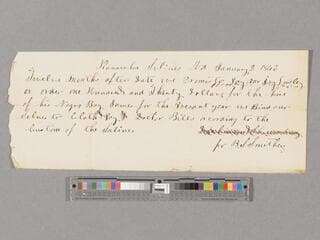 Kanawha Salines Va January 2
Twelve Months after Date we Promis to Pay
or order one Hundred and Thirty Dollars for the hire
of his Negro Boy James for the Present year we Bind our
selves to Cloth Pay Doctor Biles acording to the
Custom of the Salines
for